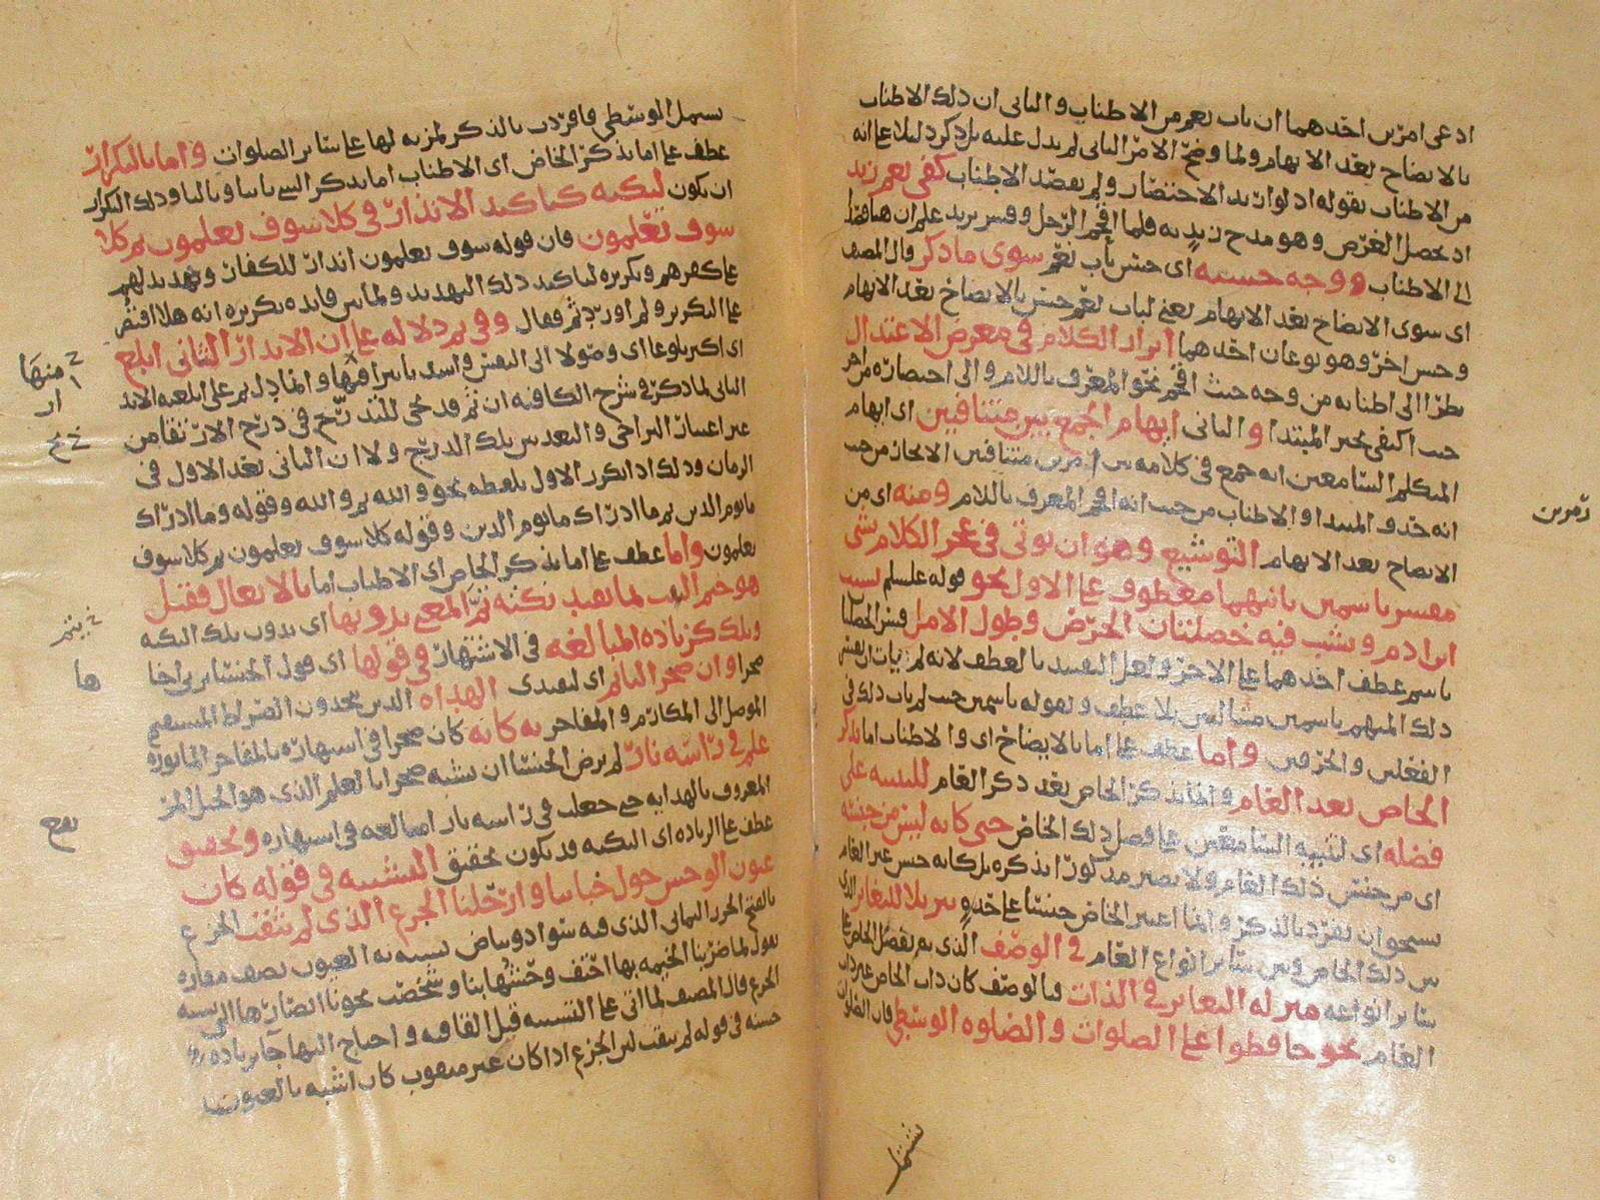 ادعى امرين احدهما ان باب نعم من الاطناب والثاني ان ذلك الاطناب
بالايضاح بعد الابهام ولما وضح الامر الثاني لم يدل عليه دليلا على انه
من الاطناب بقوله اذ لو اريد الاختصار ولم يقصد الاطناب كفى نعم زيد
اذ يحصل الغرض وهو مدح زيد به فلما اقحم الرجل وفسر بزيد علم ان
الى الاطناب ووجه حسنه اي حسن باب نعم سوى ما ذكر قال المصنف
اي سوى الايضاح بعد الابهام يعني لباب نعم حسن بالايضاح بعد الابهام
وحسن اخر وهو نوعان احدهما ابراز الكلام في معرض الاعتدال
نظرا الى اطنابه من وجه حيث اقحم نحو المعرف باللام والى اختصاره من اخر
حيث اكتفى بخبر المبتدا والثاني ايهام الجمع بين متنافيين اي ايهام
المتكلم السامعين انه جمع في كلامه بين امرين متنافيين الايجاز من حيث
انه حذف المبتدا والاطناب من حيث انه اقحم المعرف باللام ومنه اي من
الايضاح بعد الابهام التوشيع وهو ان يوتى في عجز الكلام بمثنى
مفسر باسمين ثانيهما معطوف على الاول نحو قوله عليه السلام يشيب
ابن ادم ويشب فيه خصلتان الحرص وطول الامل فسر
باسم عطف احدهما على الاخر ولعل التقييد بالعطف لانه لم يات
ذلك المبهم باسمين مثاليين بلا عطف وبقوله باسمين حيث لم يات ذلك في
الفعلين والحرفين واما عطف على اما بالايضاح اي والاطناب اما بذكر
الخاص بعد العام وانما يذكر الخاص بعد ذكر العام للتنبيه على
فضله اي لتنبيه السامعين على فضل ذلك الخاص حتى كانه ليس من جنسه
اي من جنس ذلك العام ولا يصير مذكورا بذكره بل كانه جنس غير العام
يستحق ان يفرد بالذكر وانما اعتبر الخاص جنسا على حدة تنزيلا للتغاير الذي
بين ذلك الخاص وبين سائر انواع العام في الوصف الذي به يفضل الخاص على
سائر انواعه منزلة التغاير في الذات فبالوصف كان ذات الخاص غير ذات
العام نحو حافظوا على الصلوات والصلوة الوسطى فان الصلوات
زمرين
تشتمل الوسطى فافردت بالذكر لمزية لها على سائر الصلوات واما بالتكرار
عطف على اما بذكر الخاص اي الاطناب اما بذكر الشي ثانيا وثالثا وذلك التكرار
ان يكون لنكتة كتاكيد الانذار في كلا سوف تعلمون ثم كلا
سوف تعلمون فان قوله سوف تعلمون انذار للكفار وتهديد لهم
على كفرهم وتكريره لتاكيد ذلك التهديد ولما بين فائدة تكريره انه هلا اقتصر
على التكرير ولم اورد ثم فقال وفي ثم دلالة على ان الانذار الثاني ابلغ
اي اكثر بلوغا اي وصولا الى النفس واشد تاثيرا فيها وانما دل ثم على ابلغية الانذار
الثاني لما ذكر في شرح الكافية ان ثم قد تجي للتدريج في درج الارتقا من
غير اعتبار التراخي والبعد بين تلك الدرج ولا ان الثاني بعد الاول في
الزمان وذلك اذا تكرر الاول بلفظه نحو والله ثم والله وقوله وما ادراك
ما يوم الدين ثم ما ادراك ما يوم الدين وقوله كلا سوف تعلمون ثم كلا سوف
تعلمون واما عطف على اما بذكر الخاص اي الاطناب اما بالايغال فقيل
هو ختم البيت بما يفيد نكتة تم المعنى بدونها اي بدون تلك النكتة
وتلك كزيادة المبالغة في الاشتهار في قولها اي قول الخنساء ترثي اخاها
صخرا وان صخرا لتاتم اي لتقتدي الهداة الذين يهدون الصراط المستقيم
الموصل الى المكارم والمفاخر به كانه كان صخرا في اشتهاره بالمفاخر الماثورة
علم في راسه نار لم ترض الخنسا ان تشبه صخرا بالعلم الذي هو الجبل
المعروف بالهداية حتى جعلت في راسه نارا مبالغة في اشتهاره وتحقيق
عطف على الزيادة اي النكتة قد يكون تحقيق التشبيه في قوله كان
عيون الوحش حول خبائنا وارحلنا الجزع الذي لم يثقب الجزع
بالفتح الخرز اليماني الذي فيه سواد وبياض تشبه به العيون يصف مفازة
يقول لما ضربنا الخيمة بها وشخصت عيونا
الجزع قال المصنف لما اتى على التشبيه قبل القافية واحتاج اليها جا بزيادة
حسنة في قوله لم يثقب لان الجزع اذا كان غير مثقوب كان اشبه بالعيون
منها
ها